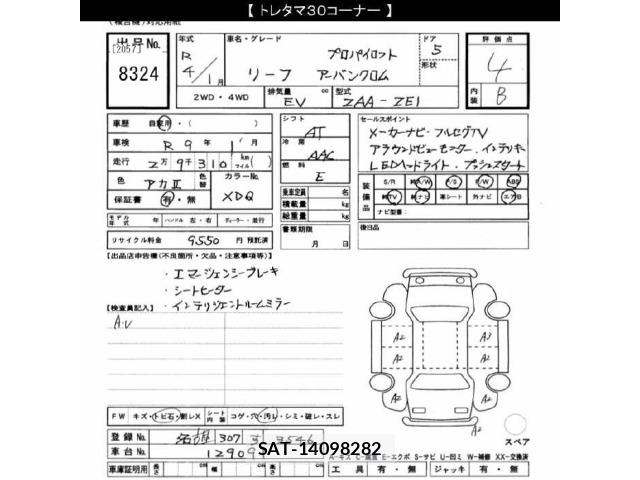 【 トレタマ30コーナー 】
出品No.
[2057]
8324
年式
R
4/1月
車名・グレード
プロパイロット
リーフ アーバンクロム
ドア
5
形状
評価点
4
内装 B
2WD・4WD
排気量 cc
EV
型式
ZAA-ZE1
車歴 自家用・( )
車検 R 9年 1月
走行 2万9千310 km(マイル)
色 アカⅡ 色替
カラーNo. XDQ
保証書 有・無
モデル年式 年 ハンドル 左・右 ディーラー・並行
リサイクル料金 9550円 預託済
シフト
AT
冷房
AAC
燃料
E
乗車定員 名
積載量 kg
総重量 kg
書類期限
月 日
セールスポイント
メーカーナビ・フルセグTV
アラウンドビューモニター・インテリキー
LEDヘッドライト・プッシュスタート
装備品
S/R 純A/W P/S P/W ABS
純TV 純ナビ 革シート 外ナビ エアB
ナビ型番:
後日品
【出品店申告欄(不良箇所・欠品・注意事項等)】
・エマージェンシーブレーキ
・シートヒーター
・インテリジェントルームミラー
【検査員記入】
A.U
A2 A3
A2 A2
A2
A2
スペア
FW キズ・トビ石・割レX シート内装 コゲ・穴・汚レ・シミ・破レ・スレ
登録No. 307
車台No. 12909
SAT-14098282
車庫証明用 長さ cm 幅 cm 高さ cm
工具 有・無 ジャッキ 有・無